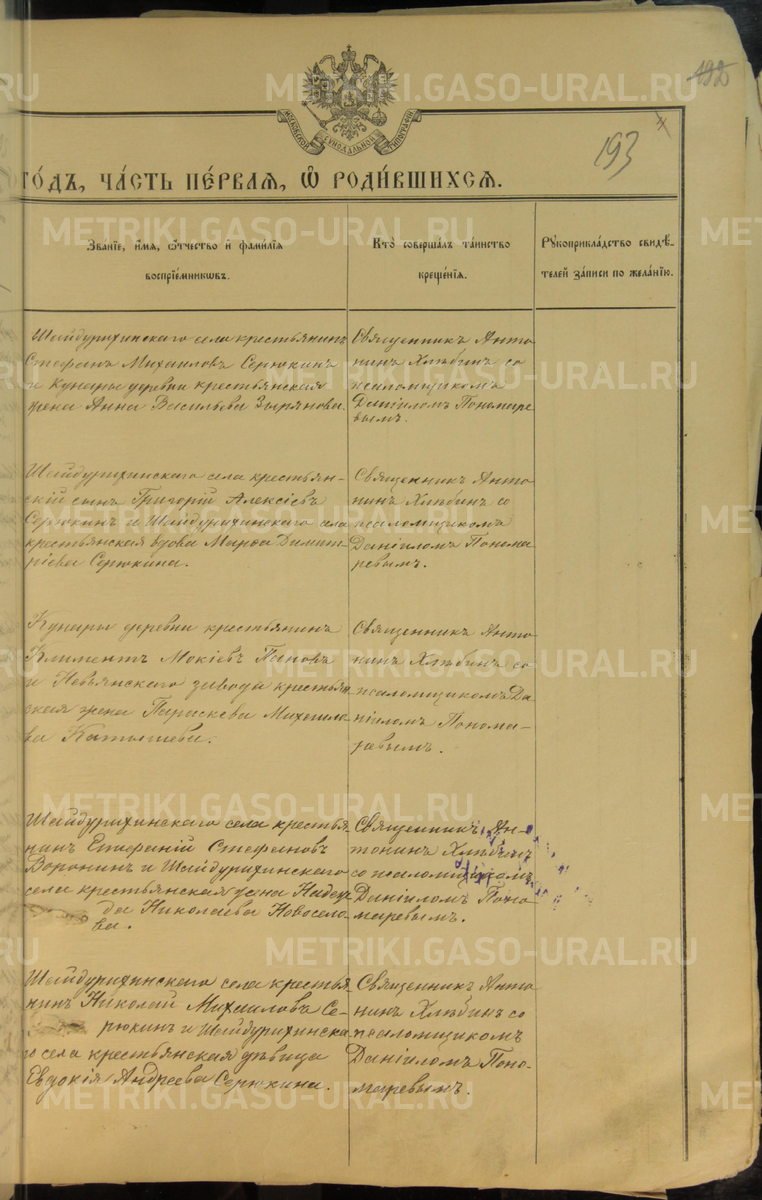 192
193
МОСКОВСКОЙ СѴНОДАЛЬНОЙ ТИПОГРАФІИ
ГО́ДЪ, ЧА́СТЬ ПЕ́РВАЯ, Ѽ РОДИ́ВШИХСЯ.
Зва́нїе, и҆́мя, ѻ҆́тчество и҆ фами́лїя
воспрїе́мникѡвъ.
Кто̀ соверша́лъ та́инство
креще́нїя.
Рꙋкоприкла́дство свидѣ́-
телей за́писи по жела́нїю.
Шайдурихинскаго села крестьянинъ
Стефанъ Михаиловъ Серюкинъ
и Кунары деревни крестьянская
жена Анна Васильева Зырянова.
Священникъ Анто-
нинъ Хлѣбинъ со
псаломщикомъ
Даніиломъ Пономаре-
вымъ.
Шайдурихинскаго села крестьян-
скій сынъ Григорій Алексіевъ
Серюкинъ и Шайдурихинскаго села
крестьянская вдова Марѳа Димит-
ріева Серюкина.
Священникъ Анто-
нинъ Хлѣбинъ со
псаломщикомъ
Даніиломъ Понома-
ревымъ.
Кунары деревни крестьянинъ
Климентъ Мокіевъ Пановъ
и Невьянскаго завода крестьян-
ская жена Параскева Михаило-
ва
Священникъ Анто-
нинъ Хлѣбинъ со
псаломщикомъ Да-
ніиломъ Понома-
ревымъ.
Шайдурихинскаго села крестья-
нинъ Епифаній Стефановъ
Воронинъ и Шайдурихинскаго
села крестьянская жена Надеж-
да Николаева Новосело-
ва.
Священникъ Ан-
тонинъ Хлѣбинъ
со псаломщикомъ
Даніиломъ Поно-
маревымъ.
Шайдурихинскаго села крестья-
нинъ Николай Михаиловъ Се-
рюкинъ и Шайдурихинска-
го села крестьянская дѣвица
Евдокія Андреева Серюкина.
Священникъ Анто-
нинъ Хлѣбинъ со
псаломщикомъ
Даніиломъ Поно-
маревымъ.
METRIKI.GASO-URAL.RU